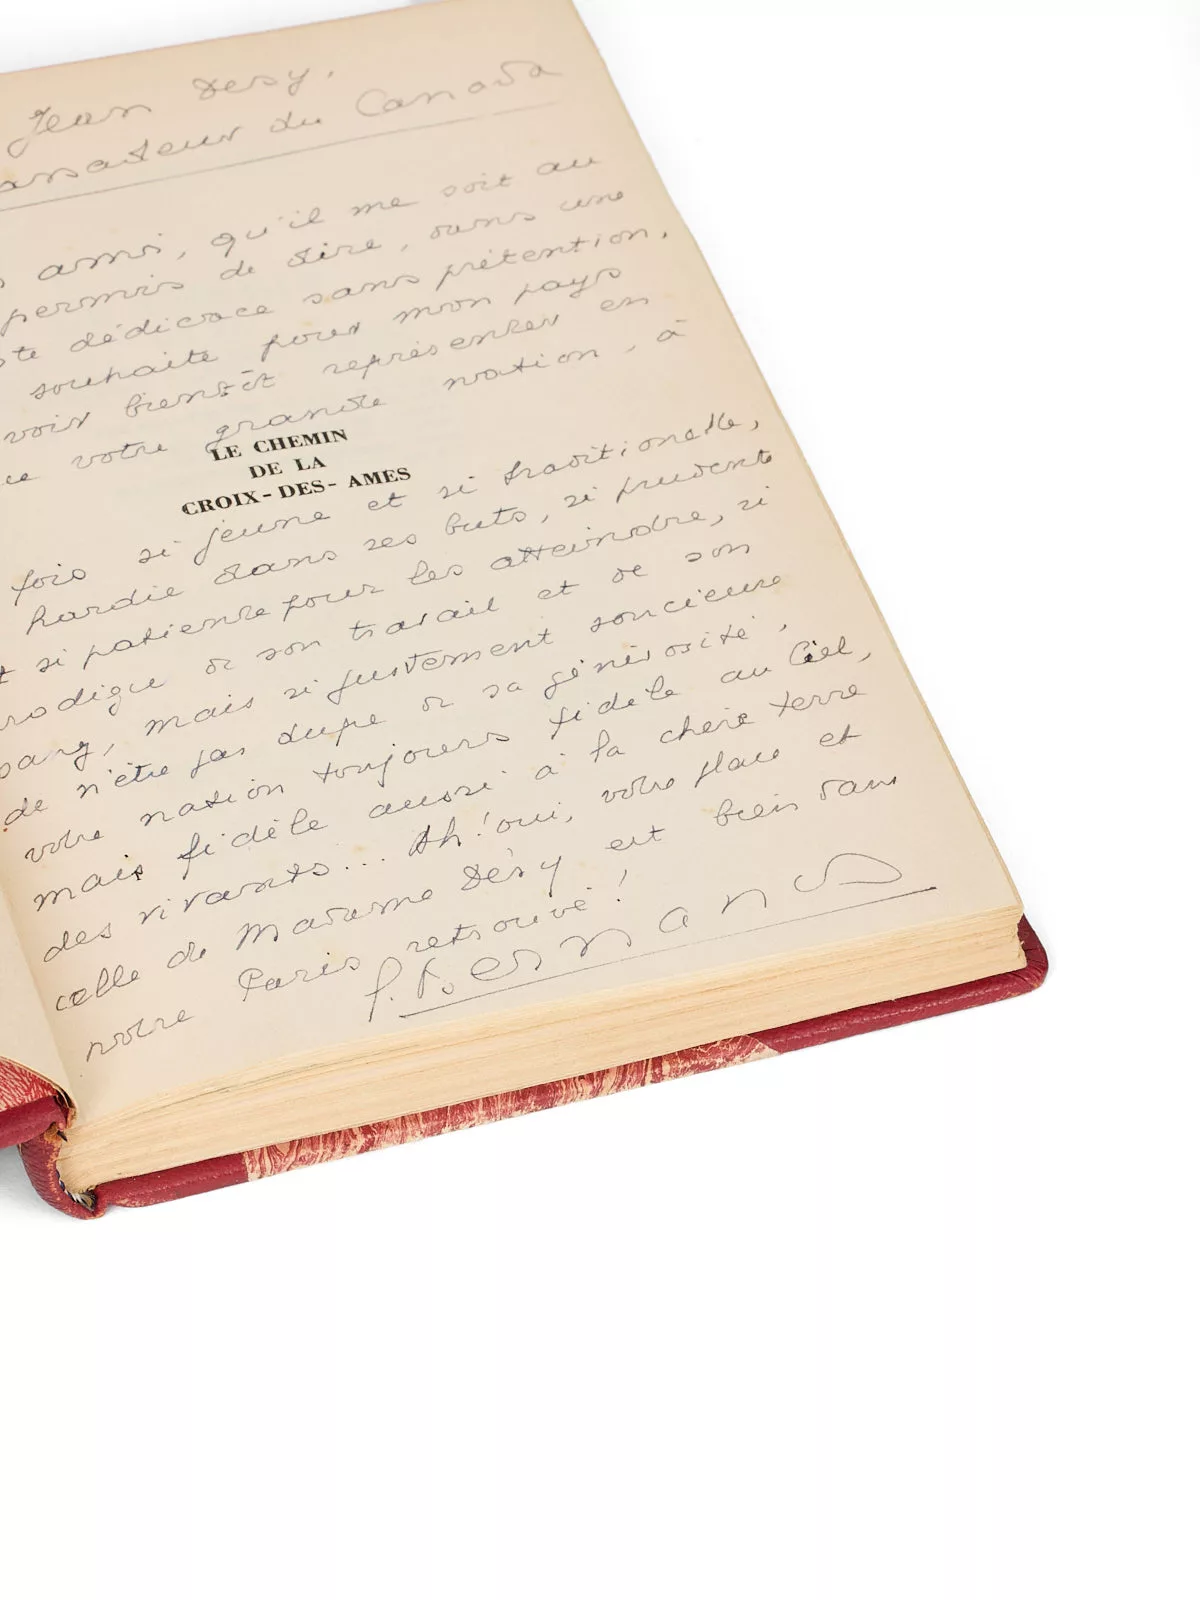 Jean Désy,
ambassadeur du Canada
amis, qu'il me soit au
permis de dire, dans une
dédicace sans prétention,
souhaite pour mon pays
voir bientôt représenter en
votre grande nation, à
LE CHEMIN
DE LA
CROIX-DES-AMES
fois si jeune et si traditionelle,
hardie dans ses buts, si prudente
et si patiente pour les atteindre, si
prodigue de son travail et de son
sang, mais si justement soucieuse
de n'être pas dupe de sa générosité,
votre nation toujours fidèle au Ciel,
mais fidèle aussi à la chère terre
des vivants... Ah! oui, votre place et
celle de Madame Désy est bien dans
notre Paris retrouvé!
G. Bernanos